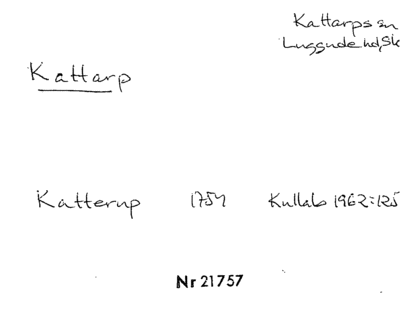 Kattarps sn
Luggude hd, Sk
Kattarp
Katterup 1754 Kullab 1962:125
Nr 21757